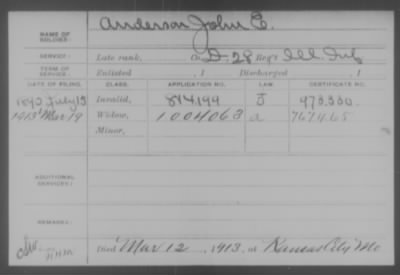 NAME OF SOLDIER: Anderson John E.
SERVICE: Late rank, Co. D-28 Reg't Ill. Inf
TERM OF SERVICE: Enlisted , 1 Discharged , 1
DATE OF FILING. CLASS. APPLICATION NO. LAW. CERTIFICATE NO.
July 15 Invalid, 814.199 J
1913 Mar 19 Widow, 1004063 a
Minor,
ADDITIONAL SERVICES:
REMARKS:
Died Mar 12, 1913, at Kansas City Mo